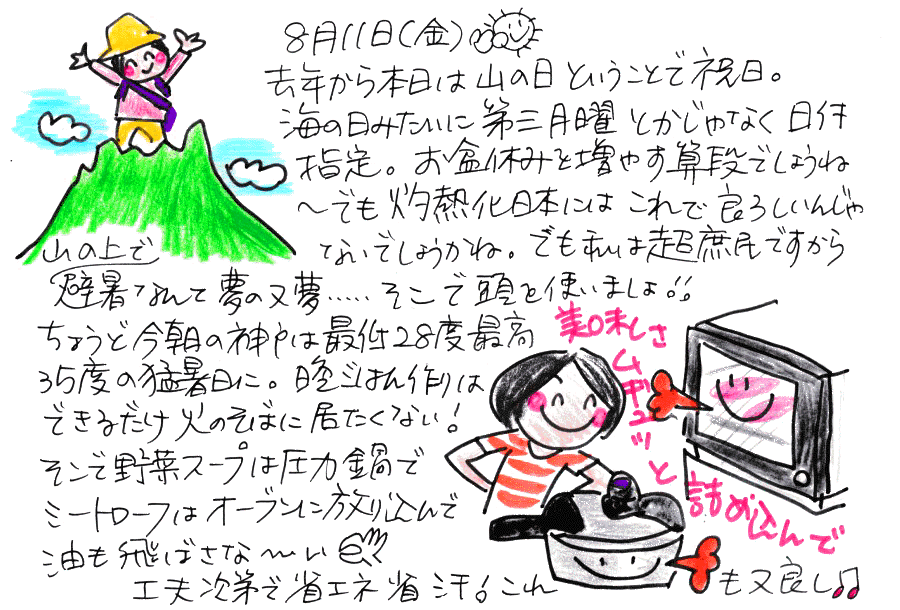 8月11日(金)
去年から本日は山の日ということで祝日。
海の日みたいに第三月曜とかじゃなく日付
指定。お盆休みを増やす算段でしょうね
〜でも灼熱化日本にはこれで良ろしいんじゃ
ないでしょうかね。でも私は超庶民ですから
山の上で
避暑なんて夢の又夢……そこで頭を使いましょ!!
ちょうど今朝の神戸は最低28度最高
35度の猛暑日に。晩ごはん作りは
できるだけ火のそばに居たくない!
そこで野菜スープは圧力鍋で
ミートローフはオーブンに放り込んで
油も飛ばさな〜い
工夫次第で省エネ省汗!これも又良し♫
美味しさ
ムギュッ
と
詰め込んで